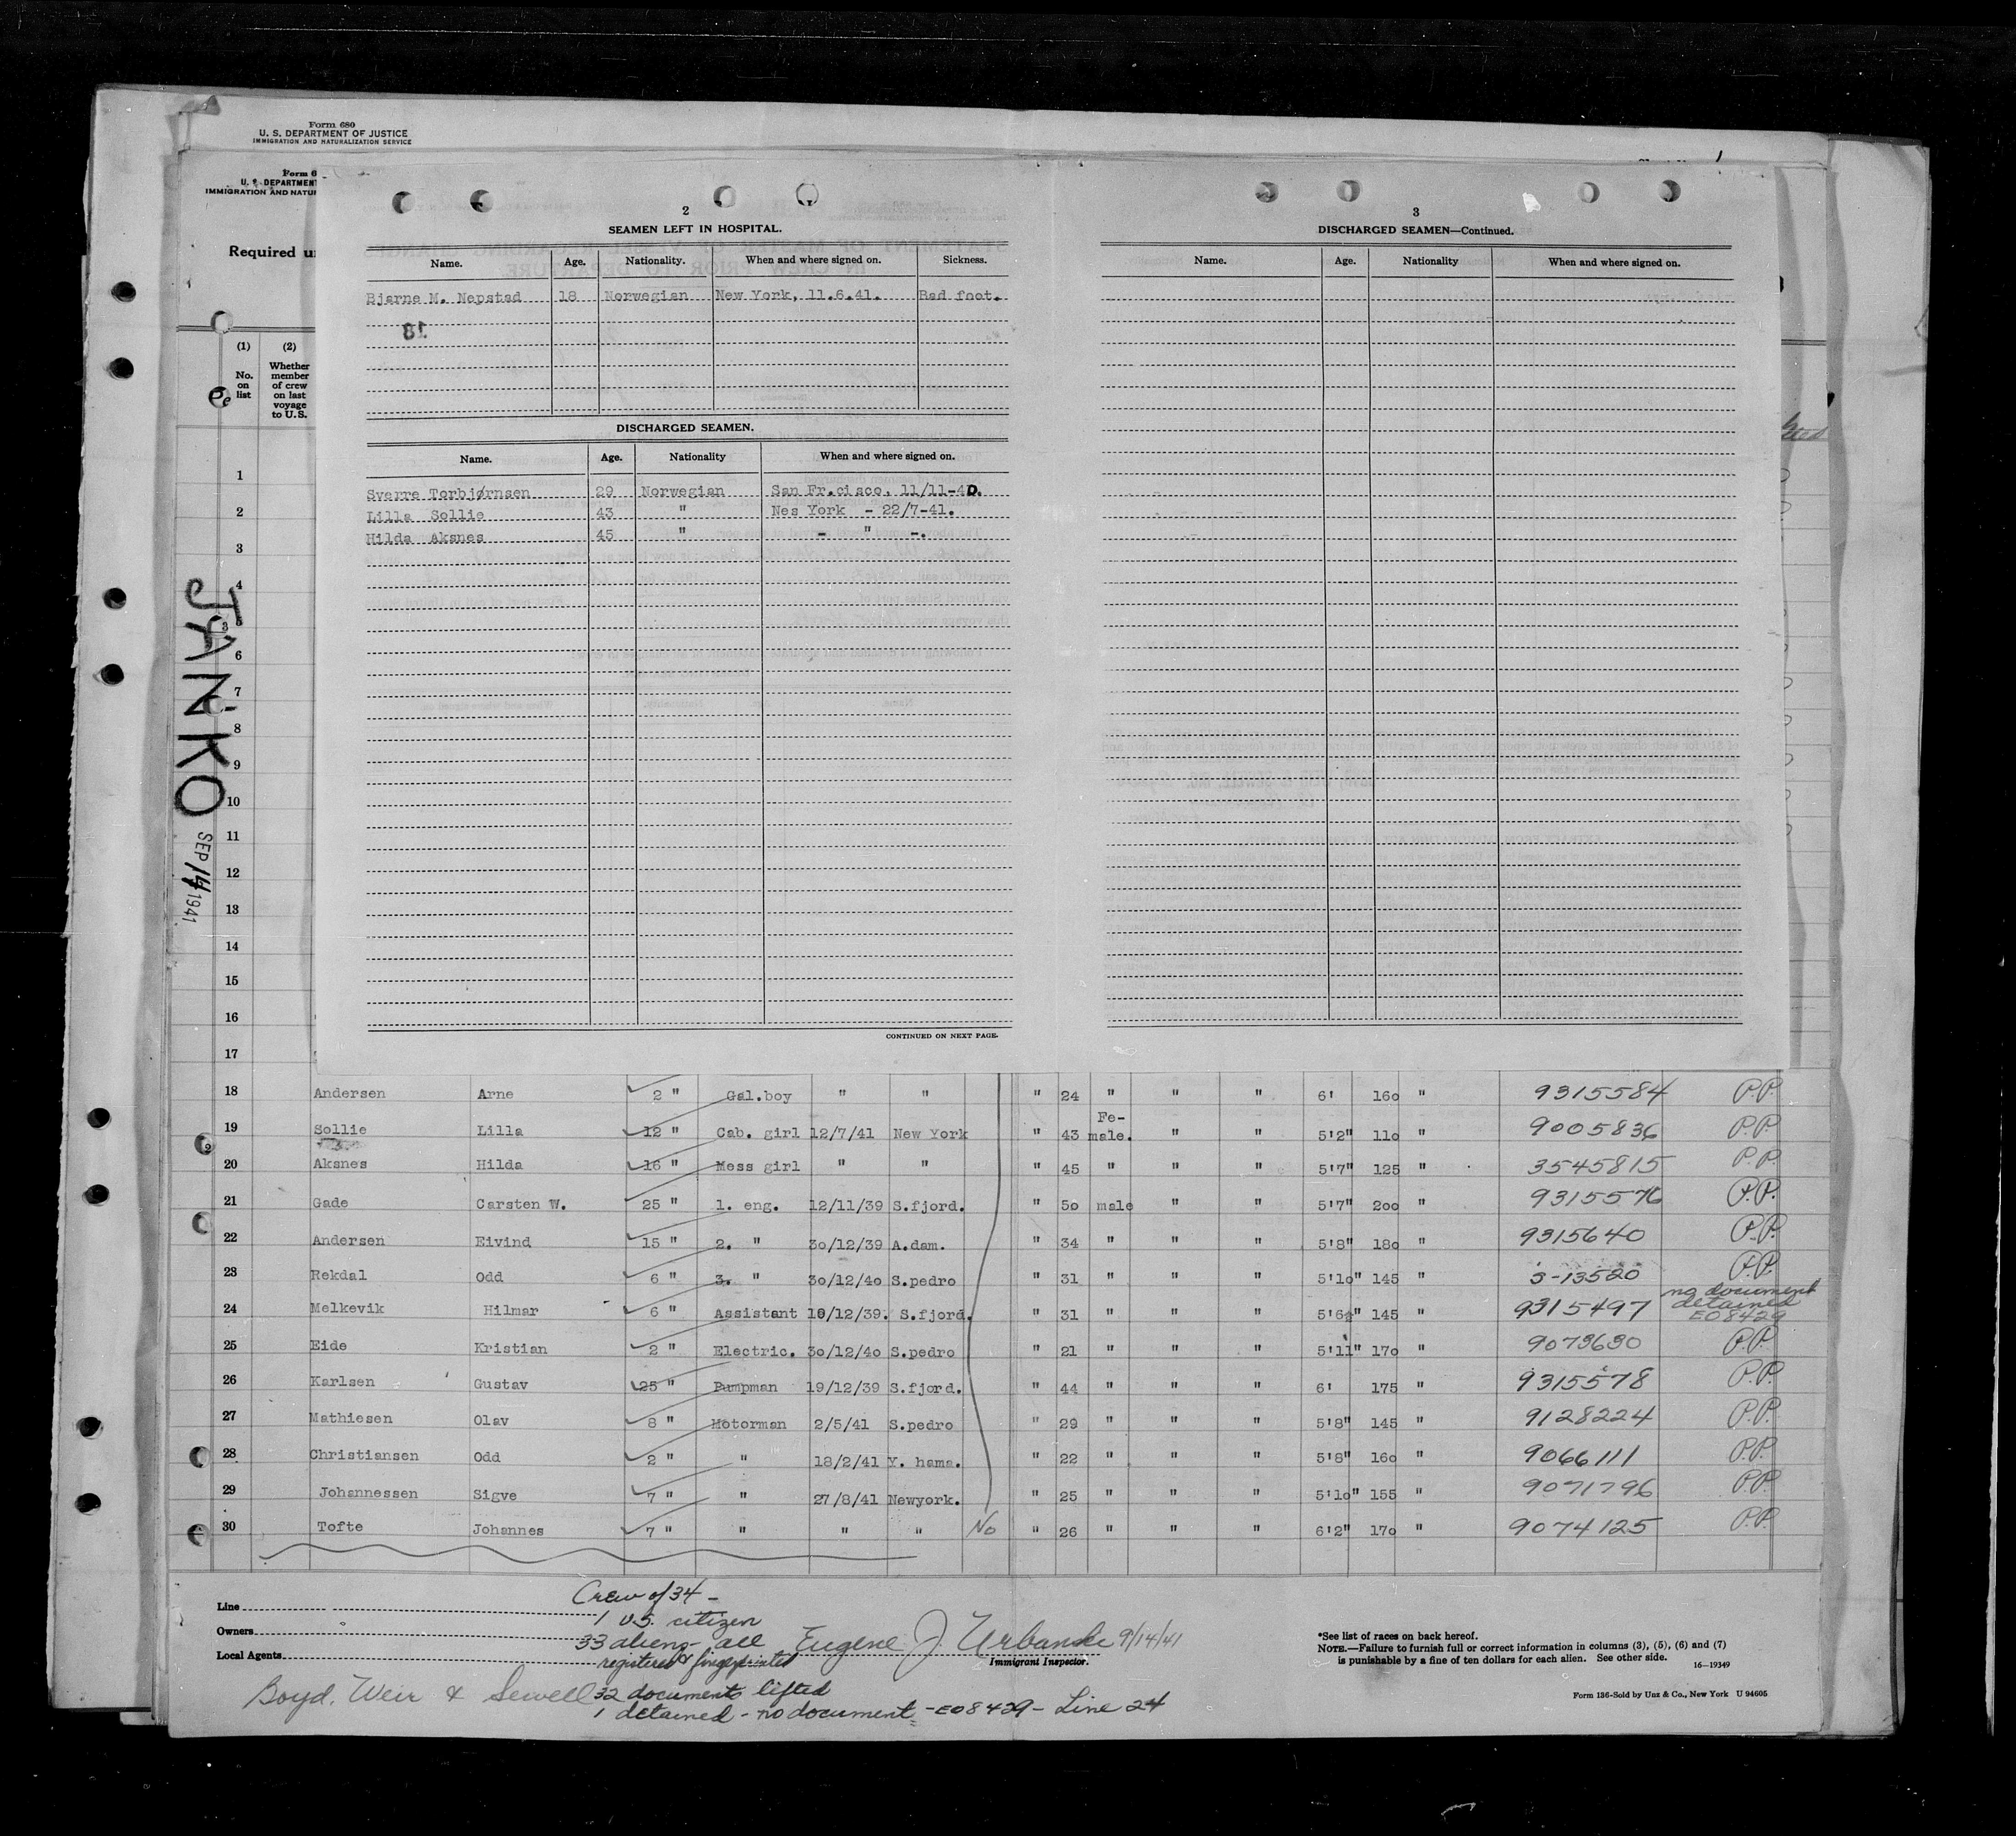 Form 680
U. S. DEPARTMENT OF JUSTICE
IMMIGRATION AND NATURALIZATION SERVICE
Form 6
U. S. DEPARTMENT
IMMIGRATION AND NATU
Required u
(1) (2)
No. on list
Whether member of crew on last voyage to U.S.
2
SEAMEN LEFT IN HOSPITAL.
Name. Age. Nationality. When and where signed on. Sickness.
Bjarne M. Nepstad 18 Norwegian New York, 11.6.41. Bad foot.
DISCHARGED SEAMEN.
Name. Age. Nationality When and where signed on.
Sverre Torbjørnsen 29 Norwegian San Fr.cisco, 11/11-40.
Lilla Sollie 43 " Nes York - 22/7-41.
Hilda Aksnes 45 " - " -.
CONTINUED ON NEXT PAGE.
3
DISCHARGED SEAMEN—Continued.
Name. Age. Nationality When and where signed on.
JANKO
SEP 14 1941
1
2
3
4
6
7
8
9
10
11
12
13
14
15
16
17
18 Andersen Arne 2 " Gal.boy " " " 24 " " " 6' 160 " 9315584 P.P.
19 Sollie Lilla 12 " Cab. girl 12/7/41 New York " 43 Fe-male. " " 5'2" 110 " 9005836 P.P.
20 Aksnes Hilda 16 " Mess girl " " " 45 " " " 5'7" 125 " 3545815 P.P.
21 Gade Carsten W. 25 " 1. eng. 12/11/39 S.fjord. " 50 male " " 5'7" 200 " 9315576 P.P.
22 Andersen Eivind 15 " 2. " 30/12/39 A.dam. " 34 " " " 5'8" 180 " 9315640 P.P.
23 Rekdal Odd 6 " 3. " 30/12/40 S.pedro " 31 " " " 5'10" 145 " 5-13520 P.P.
24 Melkevik Hilmar 6 " Assistant 10/12/39. S.fjord. " 31 " " " 5'6½" 145 " 9315497 no document detained E08429
25 Eide Kristian 2 " Electric. 30/12/40 S.pedro " 21 " " " 5'11" 170 " 9073630 P.P.
26 Karlsen Gustav 25 " Pumpman 19/12/39 S.fjord. " 44 " " " 6' 175 " 9315578 P.P.
27 Mathiesen Olav 8 " Motorman 2/5/41 S.pedro " 29 " " " 5'8" 145 " 9128224 P.P.
28 Christiansen Odd 2 " " 18/2/41 Y. hama. " 22 " " " 5'8" 160 " 9066111 P.P.
29 Johannessen Sigve 7 " " 27/8/41 Newyork. " 25 " " " 5'10" 155 " 9071796 P.P.
30 Tofte Johannes 7 " " " " No " 26 " " " 6'2" 170 " 9074125 P.P.
Line
Owners
Local Agents
Boyd, Weir & Sewell
Crew of 34 -
1 U.S. citizen
33 aliens - all
registered & fingerprinted
32 documents lifted
1 detained - no document - E08429 - Line 24
Eugene J. Urbanske 9/14/41
Immigrant Inspector.
*See list of races on back hereof.
NOTE.—Failure to furnish full or correct information in columns (3), (5), (6) and (7)
is punishable by a fine of ten dollars for each alien. See other side.
16—19349
Form 136-Sold by Unz & Co., New York U 94605